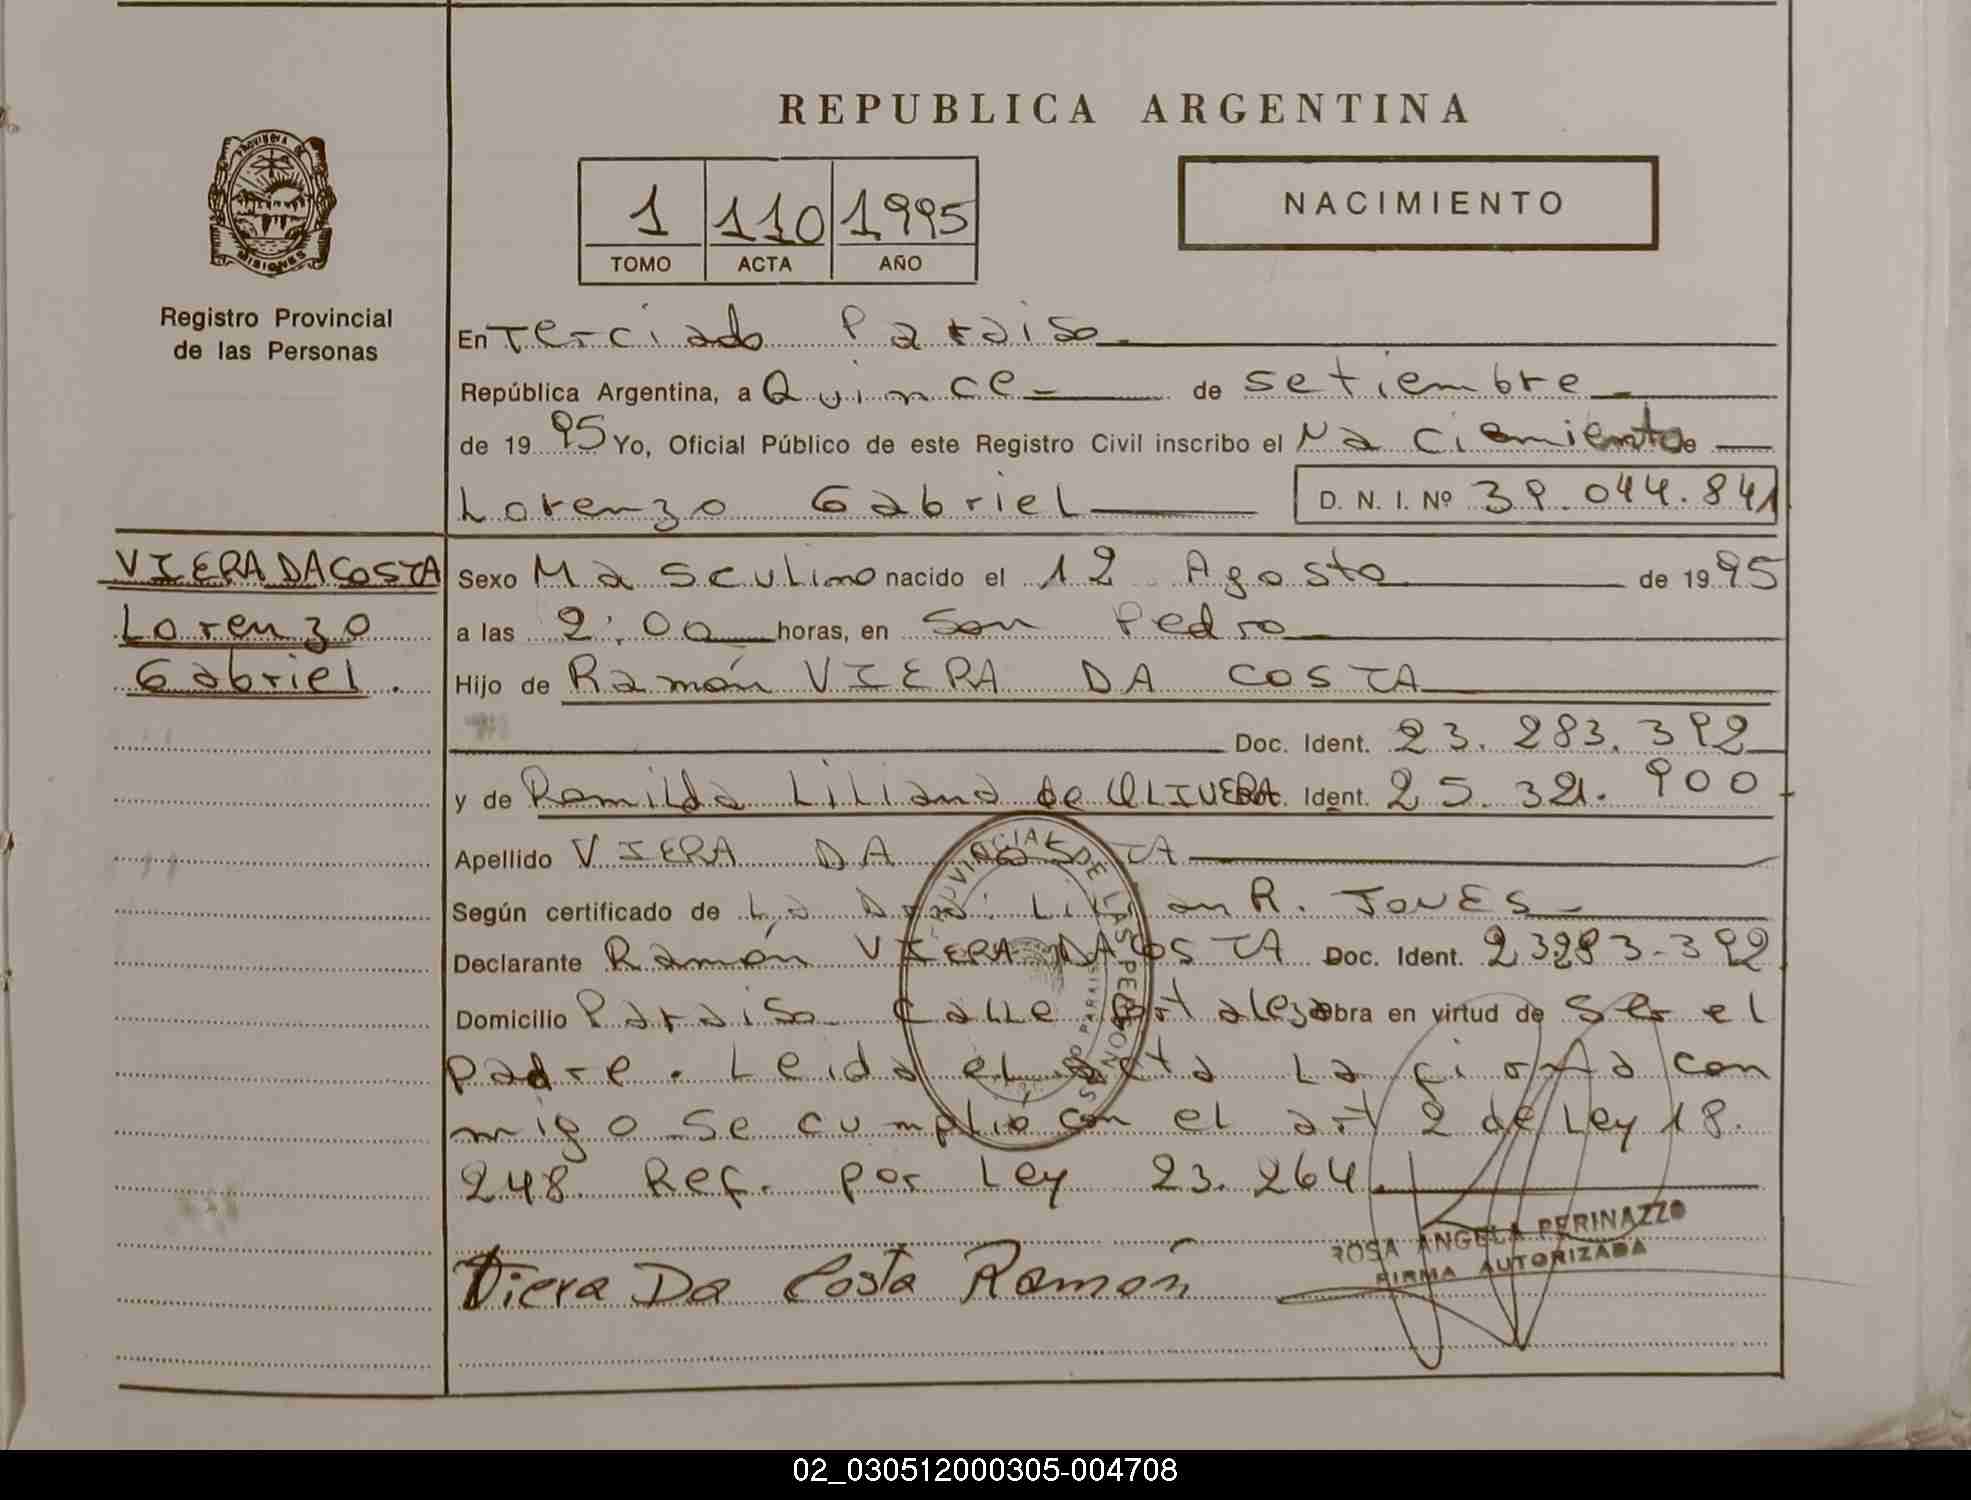 REPUBLICA ARGENTINA
PROVINCIA DE
MISIONES
Registro Provincial
de las Personas
1 110 1995
TOMO ACTA AÑO
NACIMIENTO
En Terciado Paraiso
República Argentina, a Quince de setiembre
de 19 95 Yo, Oficial Público de este Registro Civil inscribo el Nacimiento de
Lorenzo Gabriel D. N. I. Nº 39.044.841
VIERA DA COSTA
Lorenzo
Gabriel.
Sexo Masculino nacido el 12 Agosto de 19 95
a las 2:00 horas, en San Pedro
Hijo de Ramón VIERA DA COSTA
Doc. Ident. 23.283.392
y de Romilda Liliana de OLIVERA Ident. 25.321.900
Apellido VIERA DA COSTA
Según certificado de La Dra. Lilian R. JONES
Declarante Ramón VIERA DA COSTA Doc. Ident. 23283-392
Domicilio Paraiso Calle obra en virtud de ser el
padre. Leida el acta la firma con
migo se cumplió con el art 2 de Ley 18.
248 Ref. por Ley 23.264
Viera Da Costa Ramón
ROSA ANGELA PERINAZZO
FIRMA AUTORIZADA
02_030512000305-004708